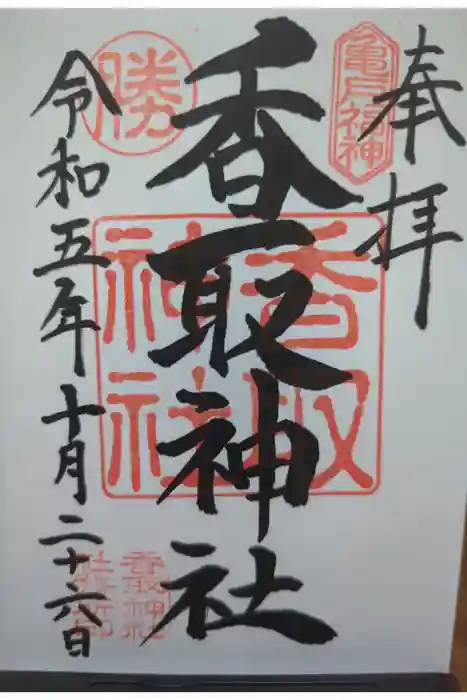 奉拝
亀戸福神
香取神社
香取
神社
勝
令和五年十月二十六日
香取神社